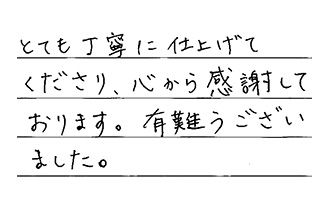 とても丁寧に仕上げて
くださり、心から感謝して
おります。有難うござい
ました。